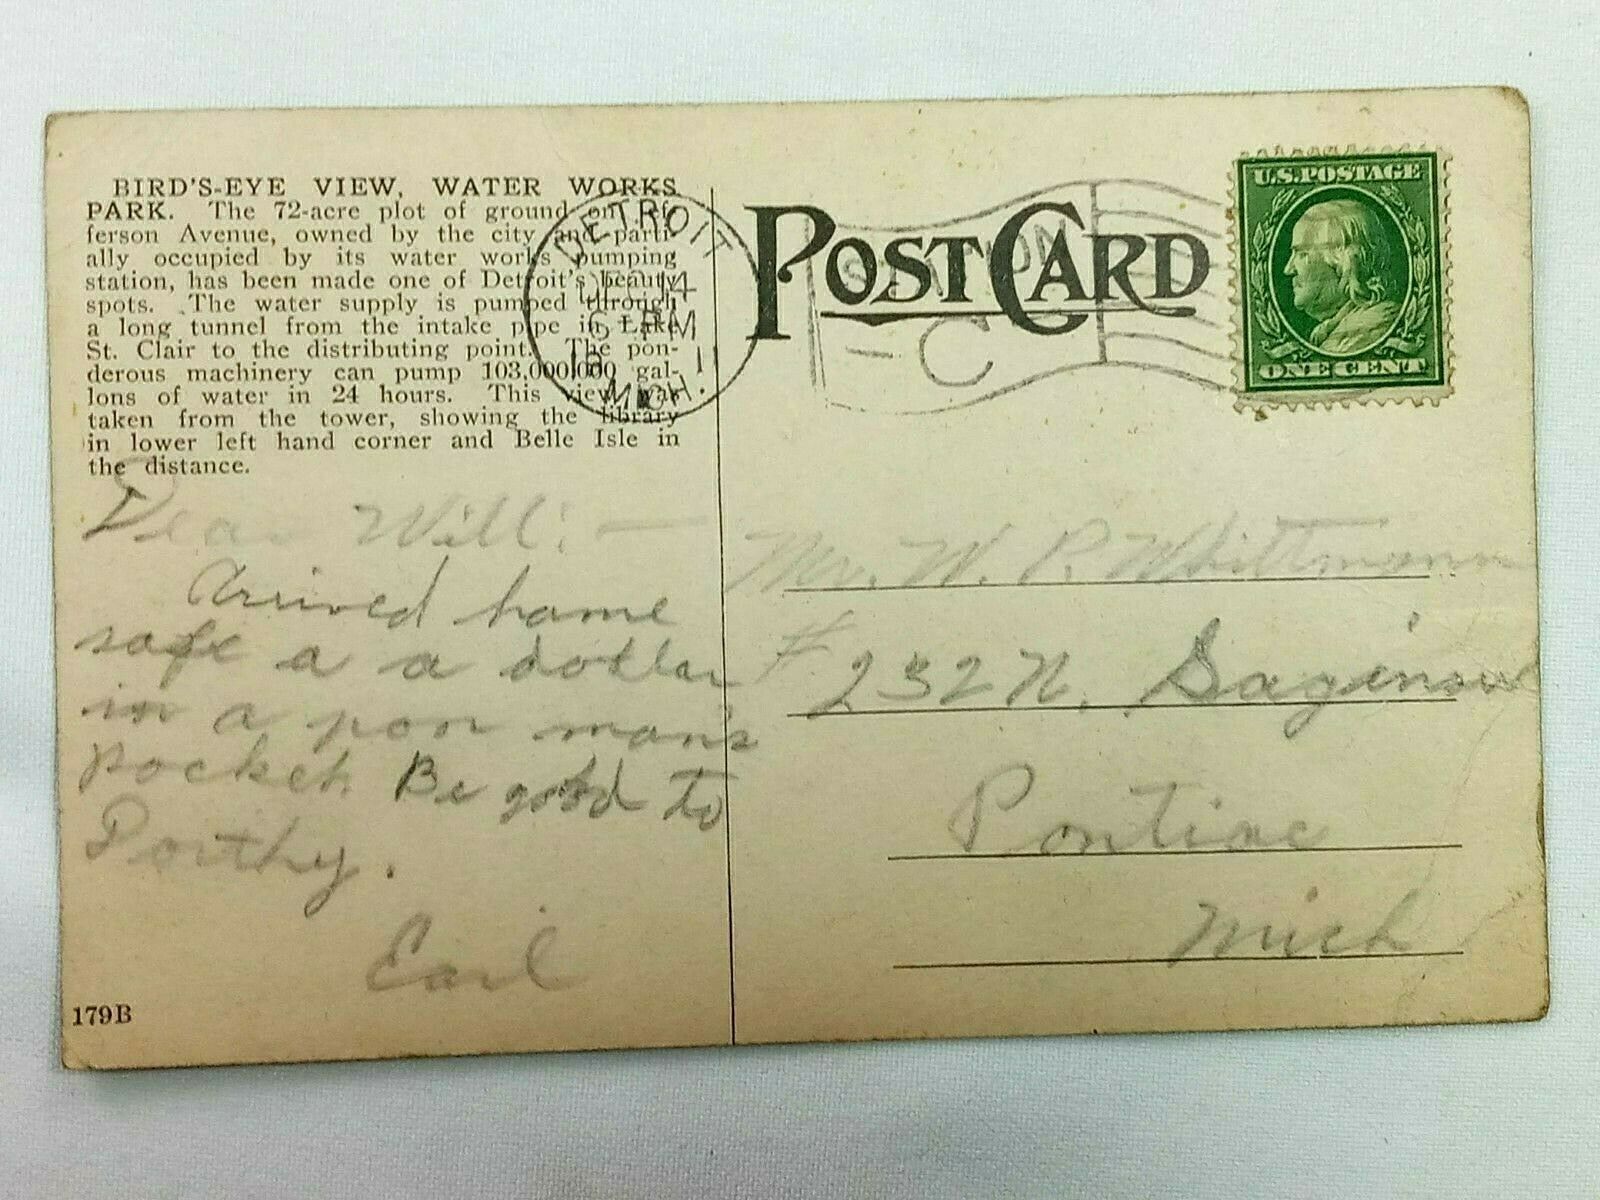 BIRD'S-EYE VIEW, WATER WORKS
PARK. The 72-acre plot of ground on Jef-
ferson Avenue, owned by the city and parti-
ally occupied by its water works pumping
station, has been made one of Detroit's beauty
spots. The water supply is pumped through
a long tunnel from the intake pipe in Lake
St. Clair to the distributing point. The pon-
derous machinery can pump 103,000,000 gal-
lons of water in 24 hours. This view was
taken from the tower, showing the library
in lower left hand corner and Belle Isle in
the distance.
DETROIT
14
PM
MICH.
POST CARD
STATION
C
U.S. POSTAGE
ONE CENT
Dear Will: —
Arrived home
safe a a dollar
in a poor man's
pocket. Be good to
Porthy.
Earl
179B
Mr. W. P. Whittmann
# 232 N. Saginaw
Pontiac
Mich